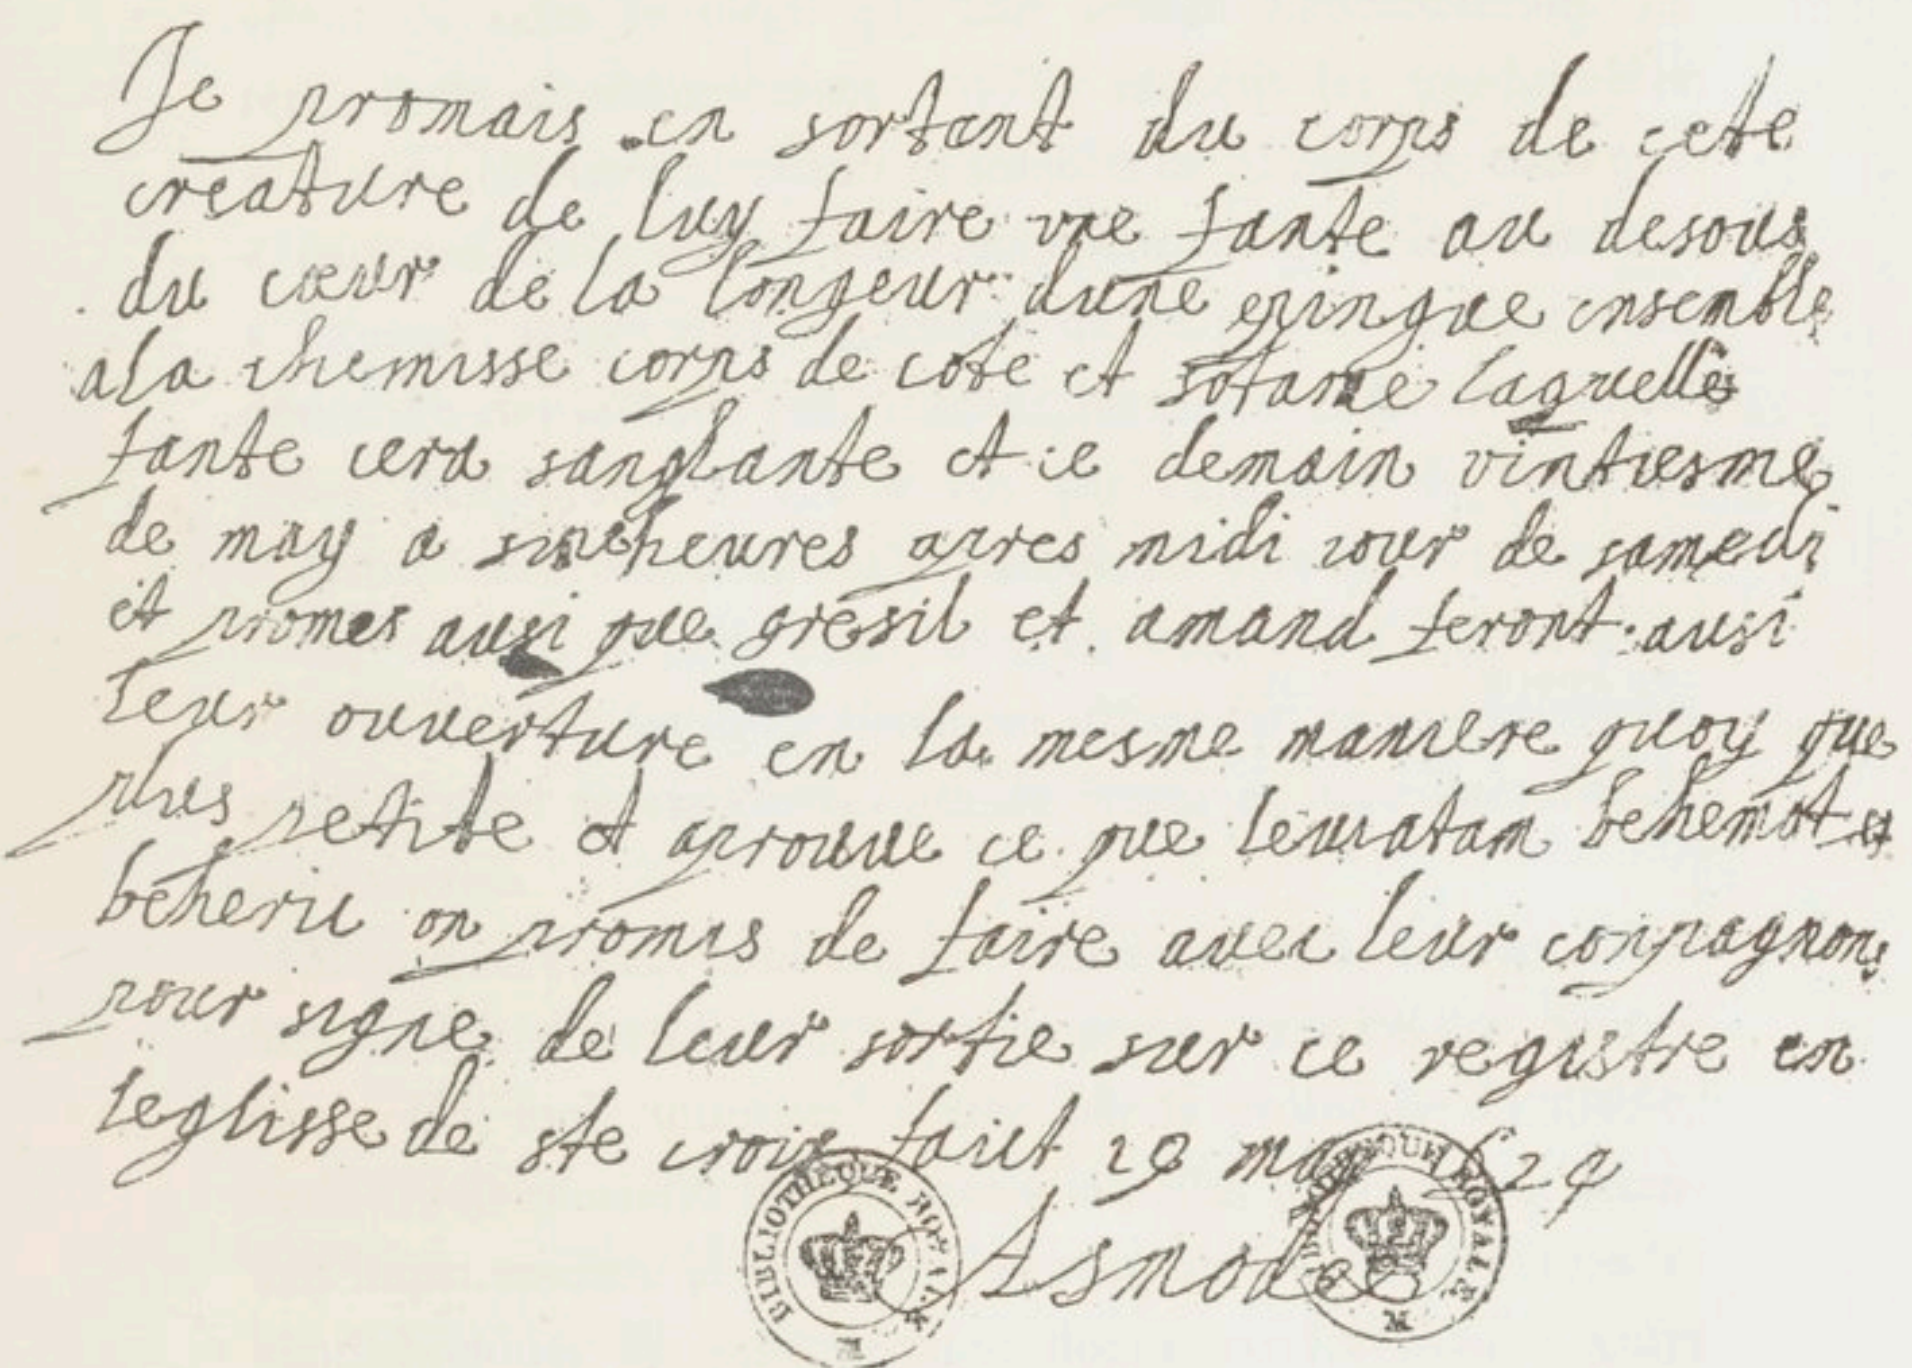 Je promais en sortant du corps de cete
creature de luy faire vne fante au desous
du cœur de la longeur dune epingue ensemble
ala chemisse corps de cote et sotane laquelle
fante cera sanglante et ce demain vintiesme
de may a heures apres midi iour de samedi
et promes ausi que gresil et amand feront ausi
leur ouverture en la mesme maniere quoy que
plus petite et aprouue ce que leuiatam behemot et
beherie on promis de faire avec leur conpagnons
pour signe de leur sortie sur ce registre en
leglisse de ste croix faict 19 may
Asmodee
BIBLIOTHEQUE ROYALE
BIBLIOTHEQUE ROYALE